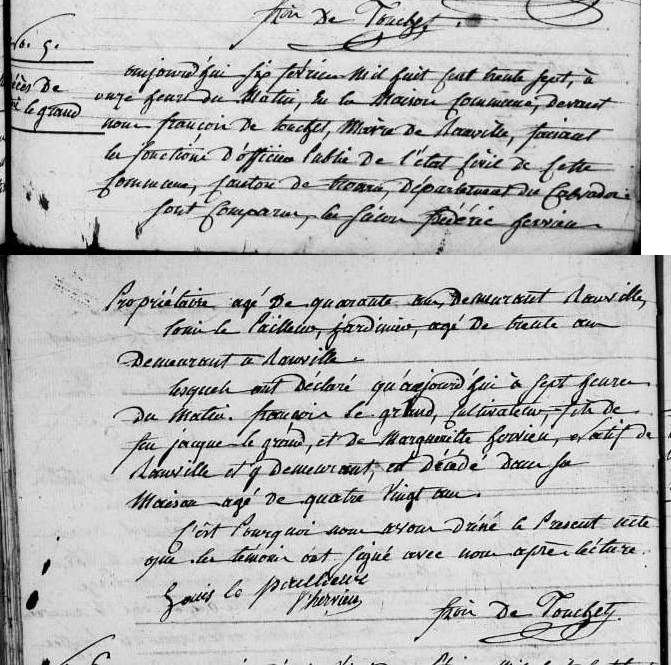 fçois De Touchet
No. 5.
décès De
le grand
aujourd'hui six février mil huit cent trente sept, à
onze heures du Matin, en la Maison Commune, Devant
nous françois de touchet, Maire de Ranville, faisant
les fonctions D'officier Public De l'état Civil de Cette
Commune, Canton de troarn, Département du Calvados
sont Comparus, les sieurs frédéric hervieu
Propriétaire agé De quarante ans, Demeurant Ranville,
Louis le Pailleur, jardinier, agé De trente ans
Demeurant a Ranville.
lesquels ont Déclaré qu'aujourd'hui à sept heures
Du Matin. françois le grand, Cultivateur, fils de
feu jacque le grand, et de Marguerite hervieu, Natif de
Ranville et y demeurant, est décédé Dans sa
Maison agé de quatre Vingt ans.
C'est Pourquoi nous avons Dréssé le Présent acte
que les témoins ont signé avec nous après lécture.
Louis le pailleur
f hervieu
fçois De Touchet